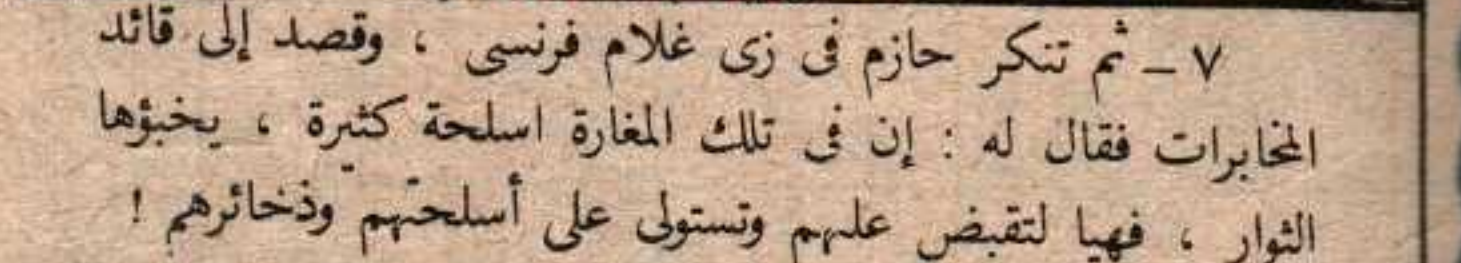 ٧ ـ ثم تنكر حازم فى زى غلام فرنسى ، وقصد إلى قائد
المخابرات فقال له : إن فى تلك المغارة اسلحة كثيرة ، يخبؤها
الثوار ، فهيا لتقبض عليهم وتستولى على أسلحتهم وذخائرهم !